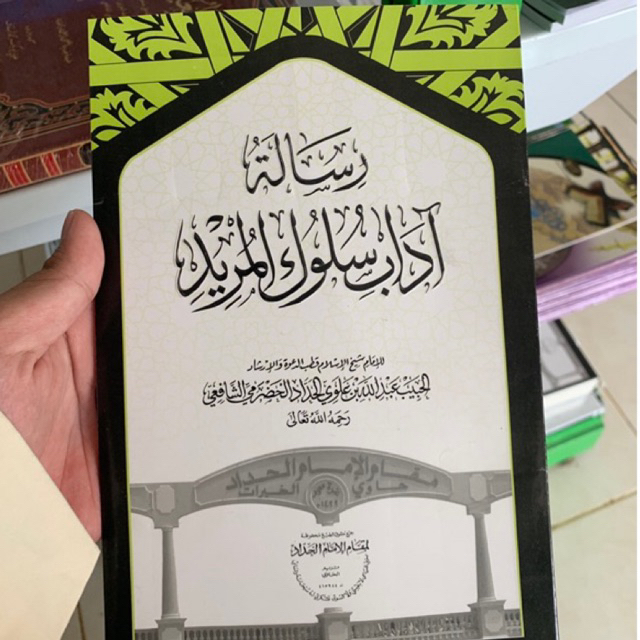 رِسَالَةُ
آدَابِ سُلُوكِ الْمُرِيْدِ
للإمام شيخ الإسلام قطب الدعوة والإرشاد
الحبيب عبد الله بن علوي الحداد الحضرمي الشافعي
رحمه الله تعالى
مقام الإمام الحداد
حاوي الخيرات
لمقام الإمام الحداد